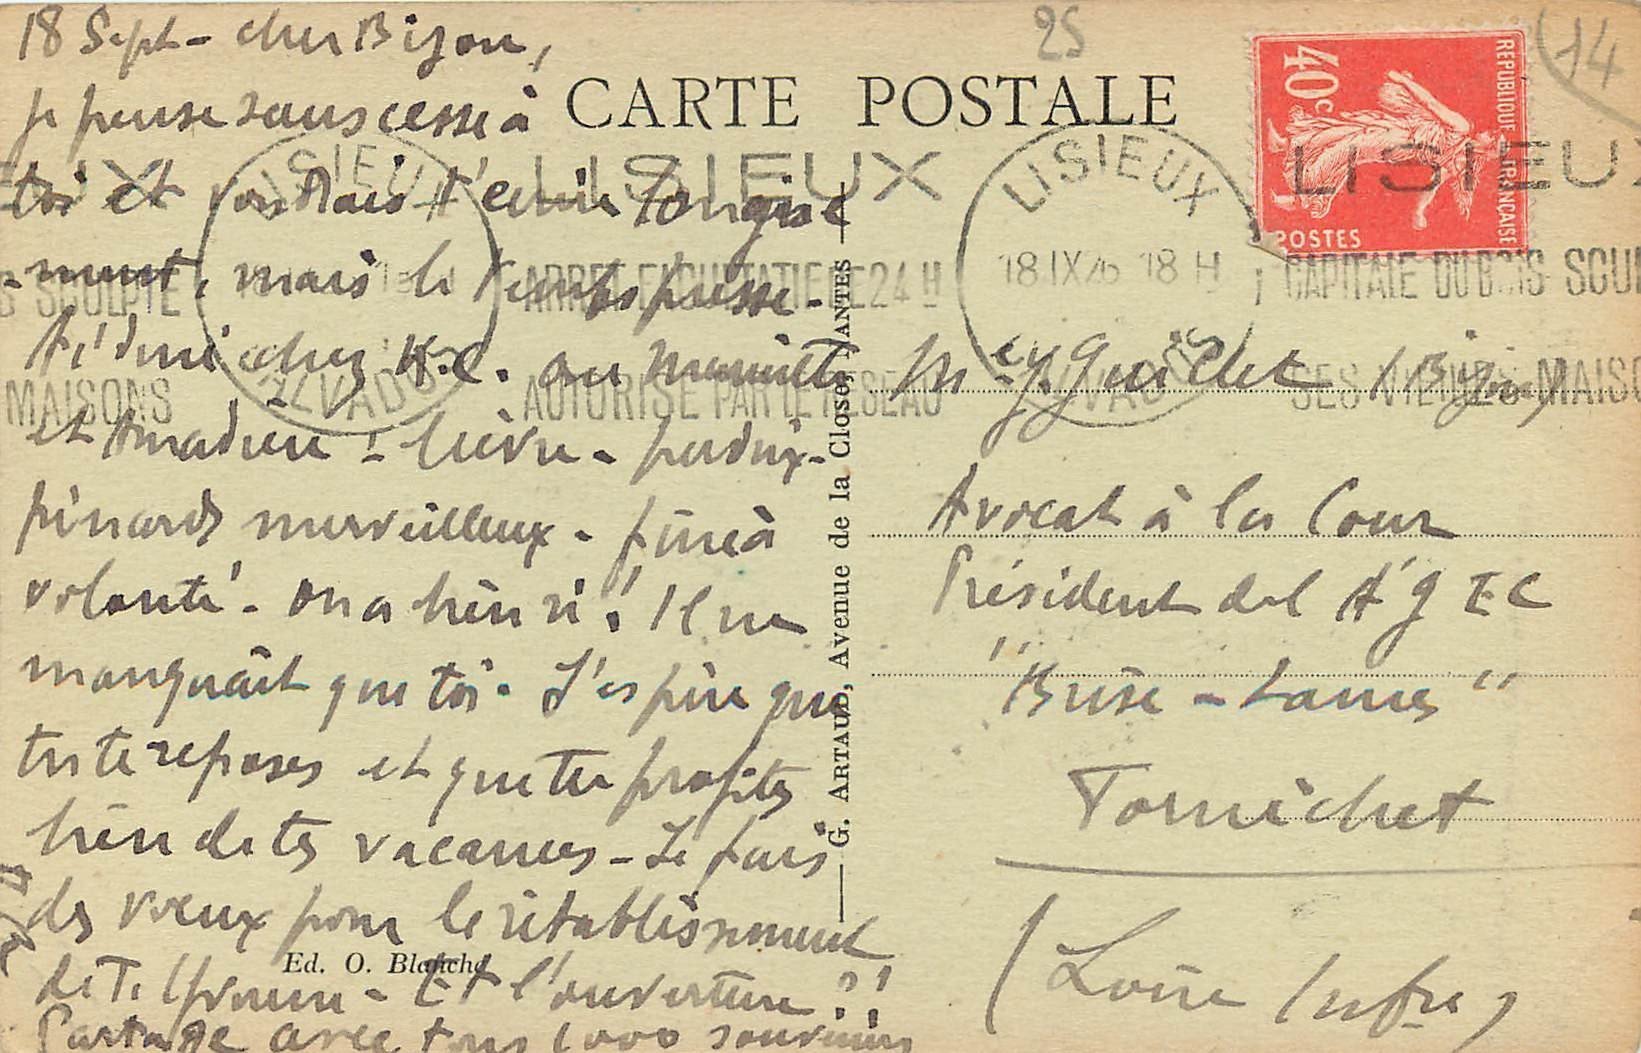 18 Sept - cher Bijou,
je pense sans cesse à
toi et voudrais t'écrire longue
-ment, mais le temps presse -
Ai diné chez
et Amadieu - lièvre - perdrix -
pinards merveilleux - fine à
volonté - on a bien ri ! Il ne
manquait que toi. J'espère que
tu te reposes et que tu profites
bien de tes vacances - Je fais
des vœux pour le rétablissement
de Et l'ouverture ?!
Partage avec tous 1000 souvenirs
25
14
CARTE POSTALE
40c
REPUBLIQUE FRANÇAISE
POSTES
LISIEUX
LISIEUX
CALVADOS
ARRET FACULTATIF DE 24 H
AUTORISE PAR LE RESEAU
LISIEUX
18 IX 26 18 H
CALVADOS
LISIEUX
CAPITALE DU BOIS SCULPTE
SES VIEILLES MAISONS
G. ARTAUD, Avenue de la Close, NANTES
Ed. O. Blanche
Guichet (Bijou)
Avocat à la Cour
Président de l'A G E C
"Brise - Lames"
Pornichet
(Loire Infre)